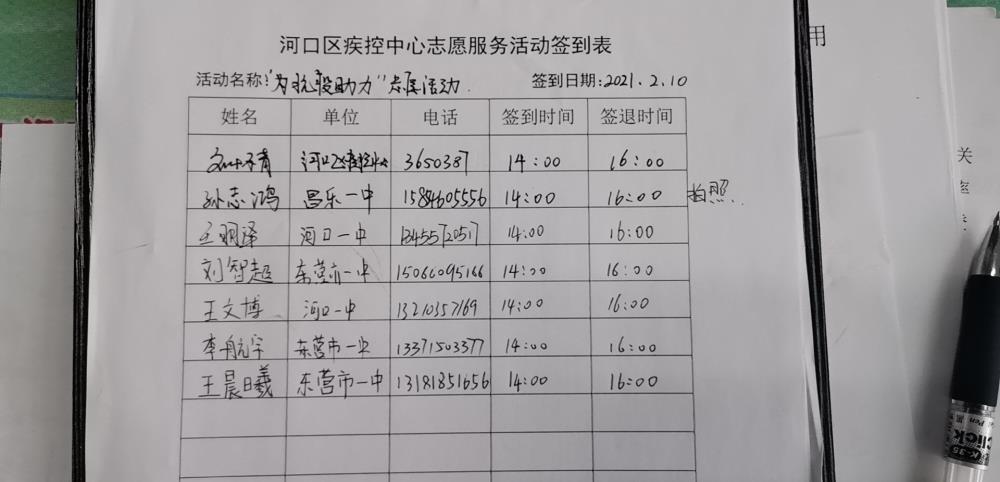 河口区疾控中心志愿服务活动签到表
活动名称:"为抗疫助力"志愿活动. 签到日期:2021.2.10
姓名 单位 电话 签到时间 签退时间
河口区疾控中心 3650387 14:00 16:00
孙志鸿 昌乐一中 15884605556 14:00 16:00 拍照.
王明泽 河口一中 13455720517 14:00 16:00
刘智超 东营市一中 15066095166 14:00 16:00
王文博 河口一中 13210357169 14:00 16:00
李航宇 东营市一中 13371503377 14:00 16:00
王晨曦 东营市一中 13181851656 14:00 16:00
用
关
Click
K-35